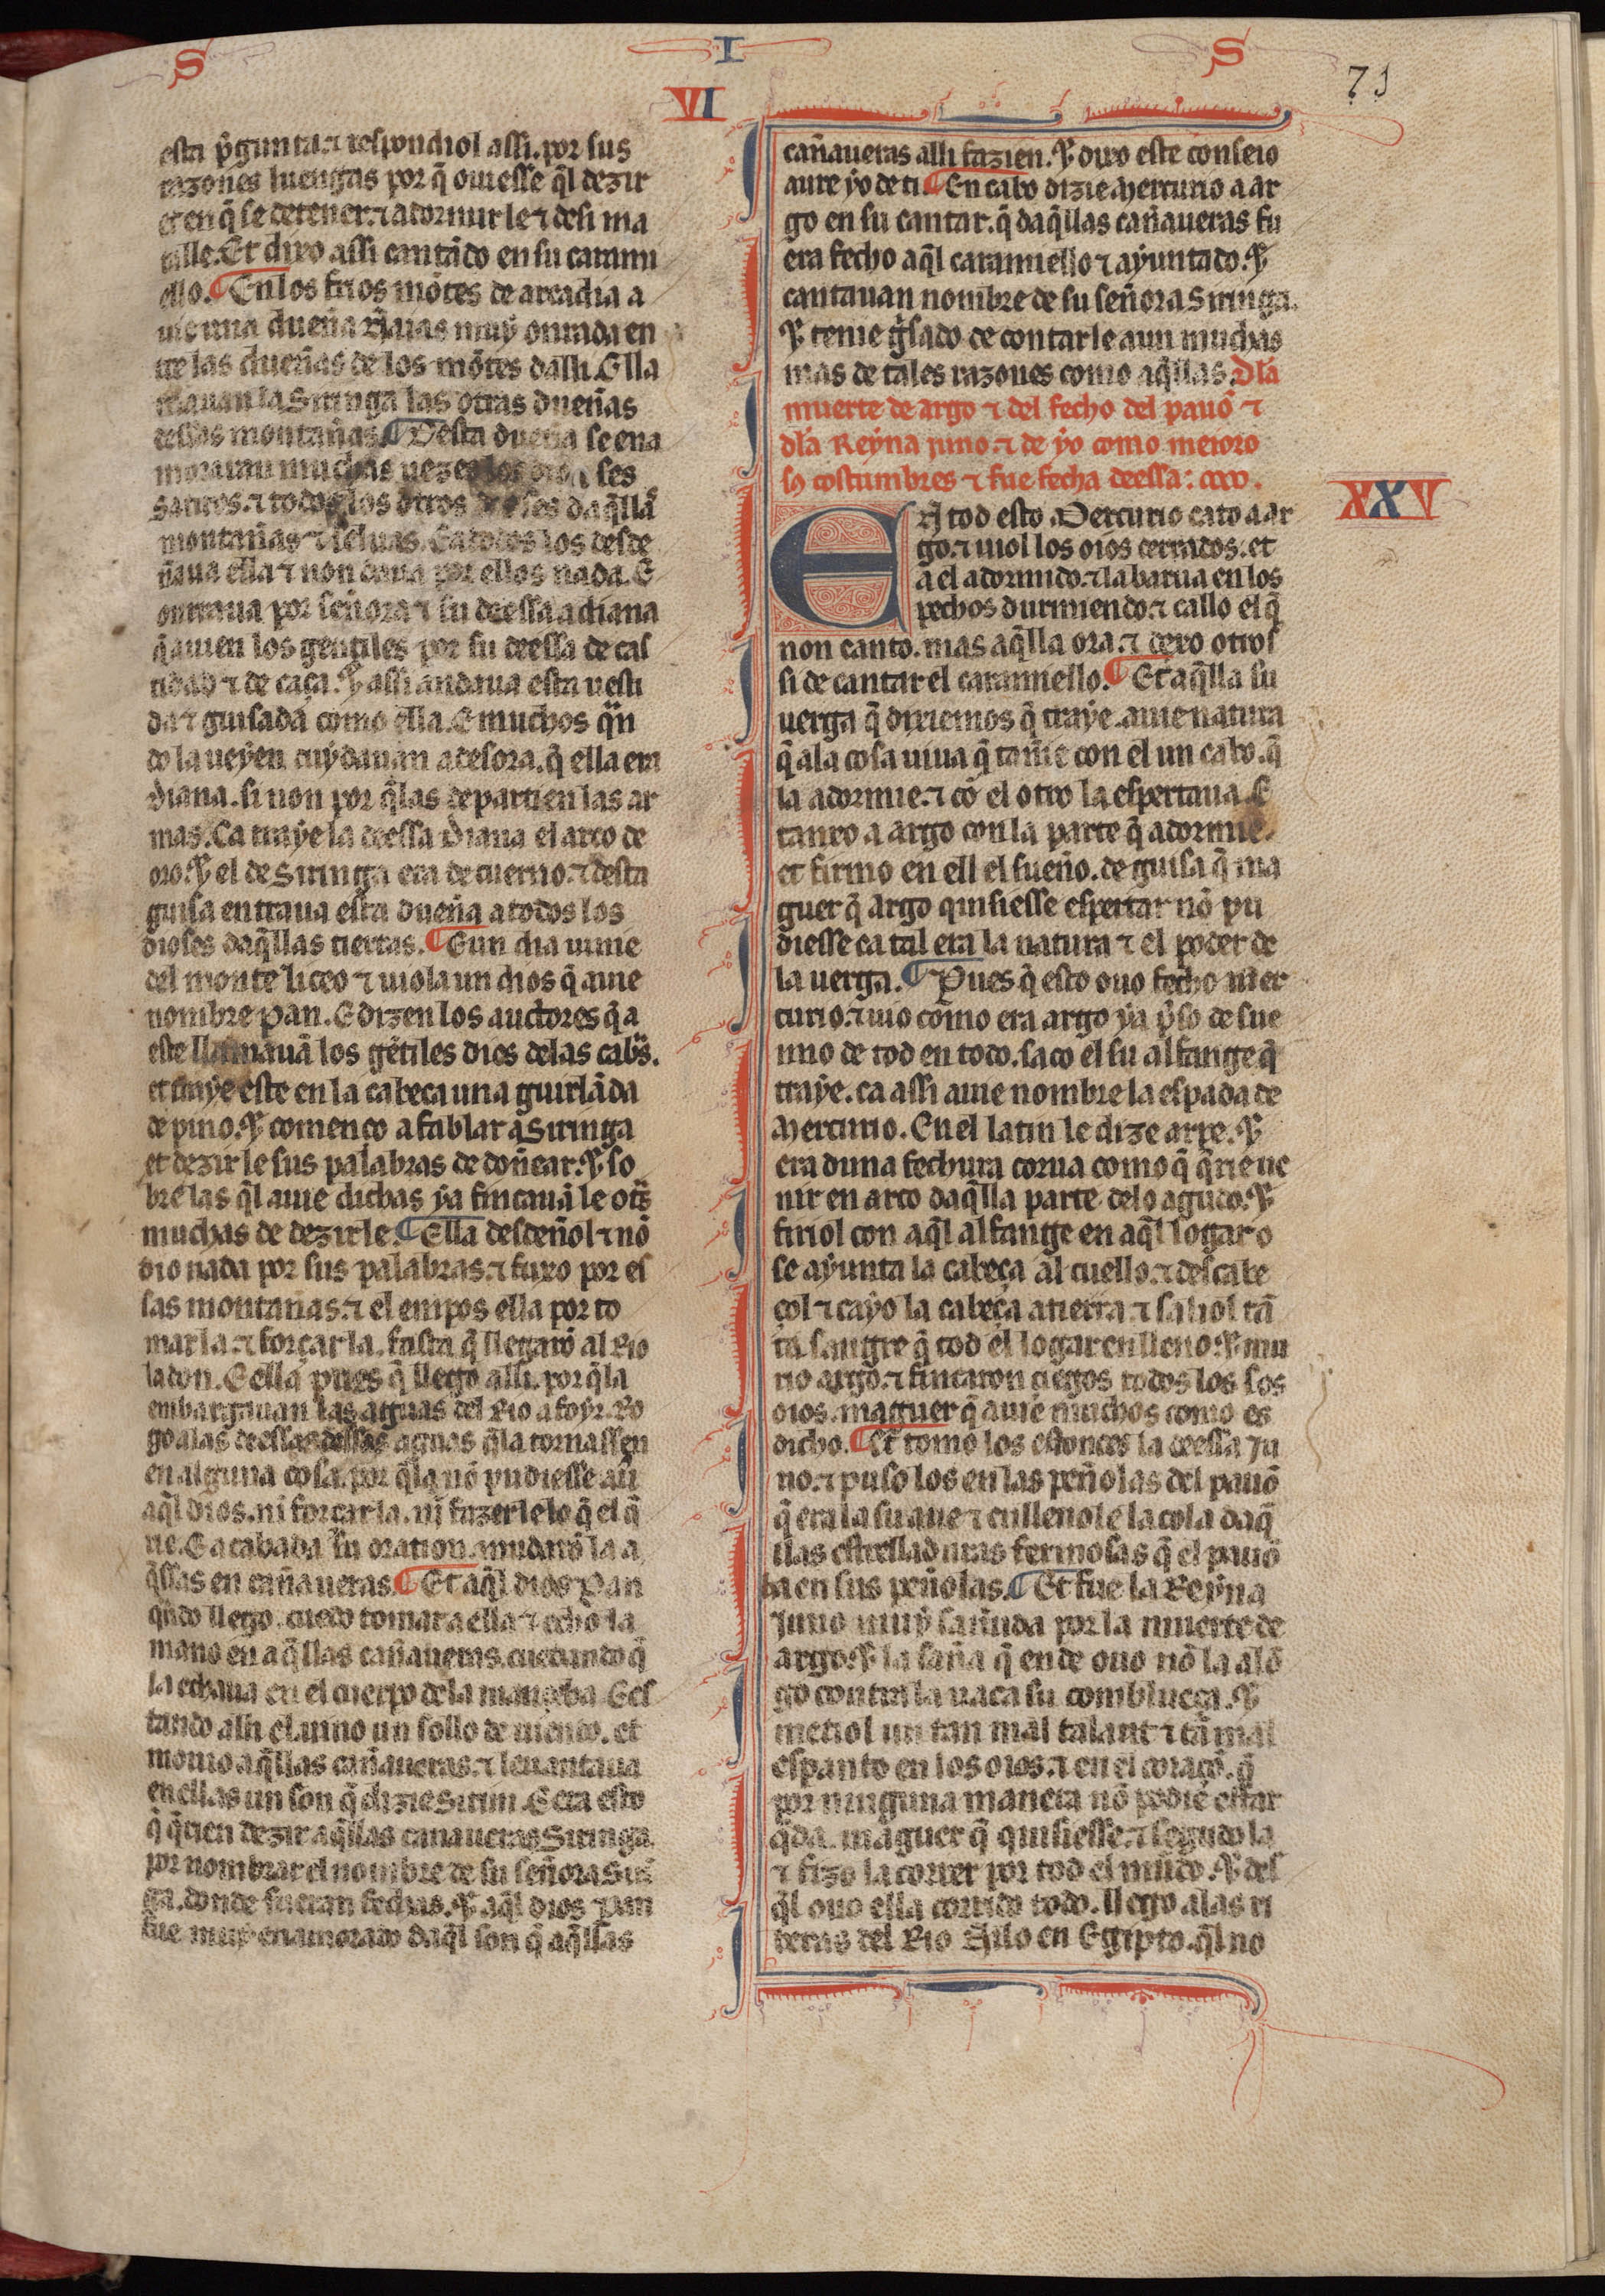 S I S
71
VI
esta p̃gunta. ⁊ respondiol assi. por sus
razones luengas por q̃ ouiesse q̃l dezir
et en q̃ se detener. ⁊ adormir le ⁊ desi ma
talle. Et dixo assi cantãdo en su caramí
ello. ¶ En los frios mõtes de arcadia a
uie una dueña muy onrrada en
tre las dueñas de los mõtes dalli. Ella
llamauan la Siringa las otras dueñas
dessas montañas. ¶ Desta dueña se ena
morauan muchas uezes los dioses
satiros. ⁊ todos los otros dioses daq̃llas
montañas ⁊ seluas. Ca todos los desde
ñaua ella ⁊ non daua por ellos nada. E
onrraua por señora ⁊ su deessa a diana
q̃ auien los gentiles por su deessa de cas
tidad ⁊ de caça. Y assi andaua esta uesti
da ⁊ guisada como ella. E muchos q̃n
do la ueyen cuydauan adesora. q̃ ella era
Diana. si non por q̃ las departien las ar
mas. Ca traye la deessa Diana el arco de
oro. Y el de Siringa era de cuerno. ⁊ desta
guisa entraua esta dueña a todos los
dioses daq̃llas tierras. ¶ E un dia uinie
del monte liceo ⁊ uiola un dios q̃ auie
nombre Pan. E dizen los auctores q̃ a
este llamauã los gẽtiles dios delas cabr̃s.
et traye este en la cabeça una guirlãda
de pino. Y començo a fablar a Siringa
et dezir le sus palabras de doñear. Y so
bre las q̃l auie dichas ya fincauã le otr̃s
muchas de dezirle. ¶ Ella desdeñol ⁊ nõ
dio nada por sus palabras. ⁊ fuxo por es
sas montañas. ⁊ el empos ella por to
marla. ⁊ forçarla. fasta q̃ llegarõ al Rio
ladon. E ella pues q̃ llego alli. por q̃ la
embargauan las aguas del Rio a foyr. Ro
go alas deessas dessas aguas q̃ la tornassen
en alguna cosa. por q̃ la nõ pudiesse auer
aq̃l dios. ni forçarla. ni fazerle lo q̃ el q̃
rie. E acabada su oration. mudarõ la a
q̃ssas en cañaueras. ¶ Et aq̃l dios Pan
quãdo llego. cuedo tomar a ella ⁊ echo la
mano en aq̃llas cañaueras. cuedando q̃
la echaua en el cuerpo de la manceba. E es
tando alli el. uino un sollo de uiento. et
mouio aq̃llas cañaueras. ⁊ leuantaua
en ellas un son q̃ dizie Sirin. E era esto
q̃ q̃rien dezir aq̃llas cañaueras Siringa
por nombrar el nombre de su señora Sirĩ
ga. donde fueran fechas. Y aq̃l dios Pan
fue muy enamorado daq̃l son q̃ aq̃llas
cañaueras alli fazien. Y dixo este conseio
aure yo de ti. ¶ En cabo dizie Mercurio a ar
go en su cantar. q̃ daq̃llas cañaueras fu
era fecho aq̃l caramiello ⁊ ayuntado. Y
cantauan nombre de su señora Siringa.
Y tenie g̃sado de contarle aun muchas
mas de tales razones como aq̃llas. Dla
muerte de argo ⁊ del fecho del pauõ ⁊
dla Reyna juno. ⁊ de yo como meioro
sꝯ costumbres ⁊ fue fecha deessa: xxv.
XXV
En tod esto Mercurio cato a ar
go. ⁊ uiol los oios cerrados. et
a el adormido. ⁊ la barua en los
pechos durmiendo. ⁊ callo el q̃
non canto. mas aq̃lla ora. ⁊ dexo otros
si de cantar el caramiello. ¶ Et aq̃lla su
uerga q̃ dixiemos q̃ traye. auie natura
q̃ ala cosa uiua q̃ tañie con el un cabo. q̃
la adormie. ⁊ cõ el otro la espertaua. E
tanxo a argo con la parte q̃ adormie.
et firmo en ell el sueño. de guisa q̃ ma
guer q̃ argo quisiesse espertar nõ pu
diesse ca tal era la natura ⁊ el poder de
la uerga. ¶ Pues q̃ esto ouo fecho mer
curio. ⁊ uio como era argo ya p̃so de sue
nno de tod en todo. saco el su alfange q̃
traye. ca assi auie nombre la espada de
Mercurio. En el latin le dize arpe. Y
era duna fechura corua como q̃ q̃rie ue
nir en arco daq̃lla parte delo agudo. Y
firiol con aq̃l alfange en aq̃l logar o
se ayunta la cabeça al cuello. ⁊ descabe
çol ⁊ cayo la cabeça a tierra ⁊ saliol tã
ta sangre q̃ tod el logar enlleno. Y mu
rio argo. ⁊ fincaron ciegos todos los sos
oios. maguer q̃ auie muchos como es
dicho. ¶ Et tomo los estonces la deessa Ju
no. ⁊ puso los en las peñolas del pauõ
q̃ era la su aue ⁊ enllenole la cola daq̃
llas estrelladuras fermosas q̃ el pauõ
ha en sus peñolas. ¶ Et fue la Reyna
Juno muy sañuda por la muerte de
argo. Y la saña q̃ ende ouo nõ la alõ
go contra la uaca su comblueça. Y
metiol un tan mal talant ⁊ tã mal
espanto en los oios. ⁊ en el coraçõ. q̃
por ninguna manera nõ podie estar
q̃da. maguer q̃ quisiesse. ⁊ segudo la
⁊ fizo la correr por tod el mũdo. Y des
q̃l ouo ella corrido todo. llego alas ri
beras del Rio Nilo en Egipto. q̃l no